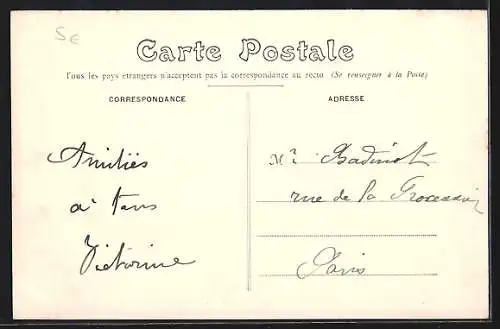 5€
Carte Postale
Tous les pays étrangers n'acceptent pas la correspondance au recto (Se renseigner à la Poste)
CORRESPONDANCE
ADRESSE
Amitiés
à tous
Victorine
Mr Badinot
rue de la Procession
Paris